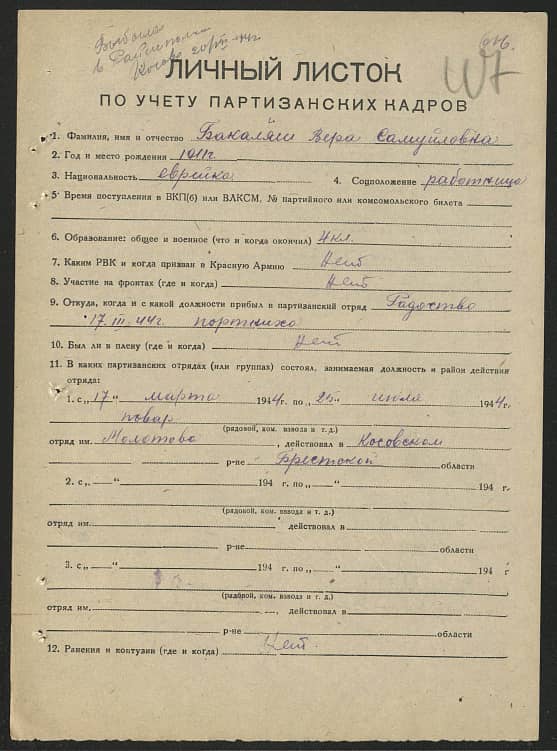 Выбыла
в
ЛИЧНЫЙ ЛИСТОК
ПО УЧЕТУ ПАРТИЗАНСКИХ КАДРОВ
1. Фамилия, имя и отчество Бакаляш Вера Самуйловна
2. Год и место рождения 1911г
3. Национальность еврейка 4. Соцположение работница
5. Время поступления в ВКП(б) или ВЛКСМ, № партийного или комсомольского билета
6. Образование: общее и военное (что и когда окончил) 4 кл.
7. Каким РВК и когда призван в Красную Армию Нет
8. Участие на фронтах (где и когда) Нет
9. Откуда, когда и с какой должности прибыл в партизанский отряд Радоство
17.III.44г. портниха
10. Был ли в плену (где и когда) Нет
11. В каких партизанских отрядах (или группах) состоял, занимаемая должность и район действия
отряда:
1. с „17“ марта 1944г. по „25“ июля 1944г.
повар
(рядовой, ком. взвода и т. д.)
отряд им. Молотова, действовал в Косовском
р-не Брестской области
2. с „ “ 194 г. по „ “ 194 г.
(рядовой, ком. взвода и т. д.)
отряд им. , действовал в
р-не области
3. с „ “ 194 г. по „ “ 194 г
(рядовой, ком. взвода и т. д.)
отряд им. , действовал в
р-не области
12. Ранения и контузии (где и когда) Нет